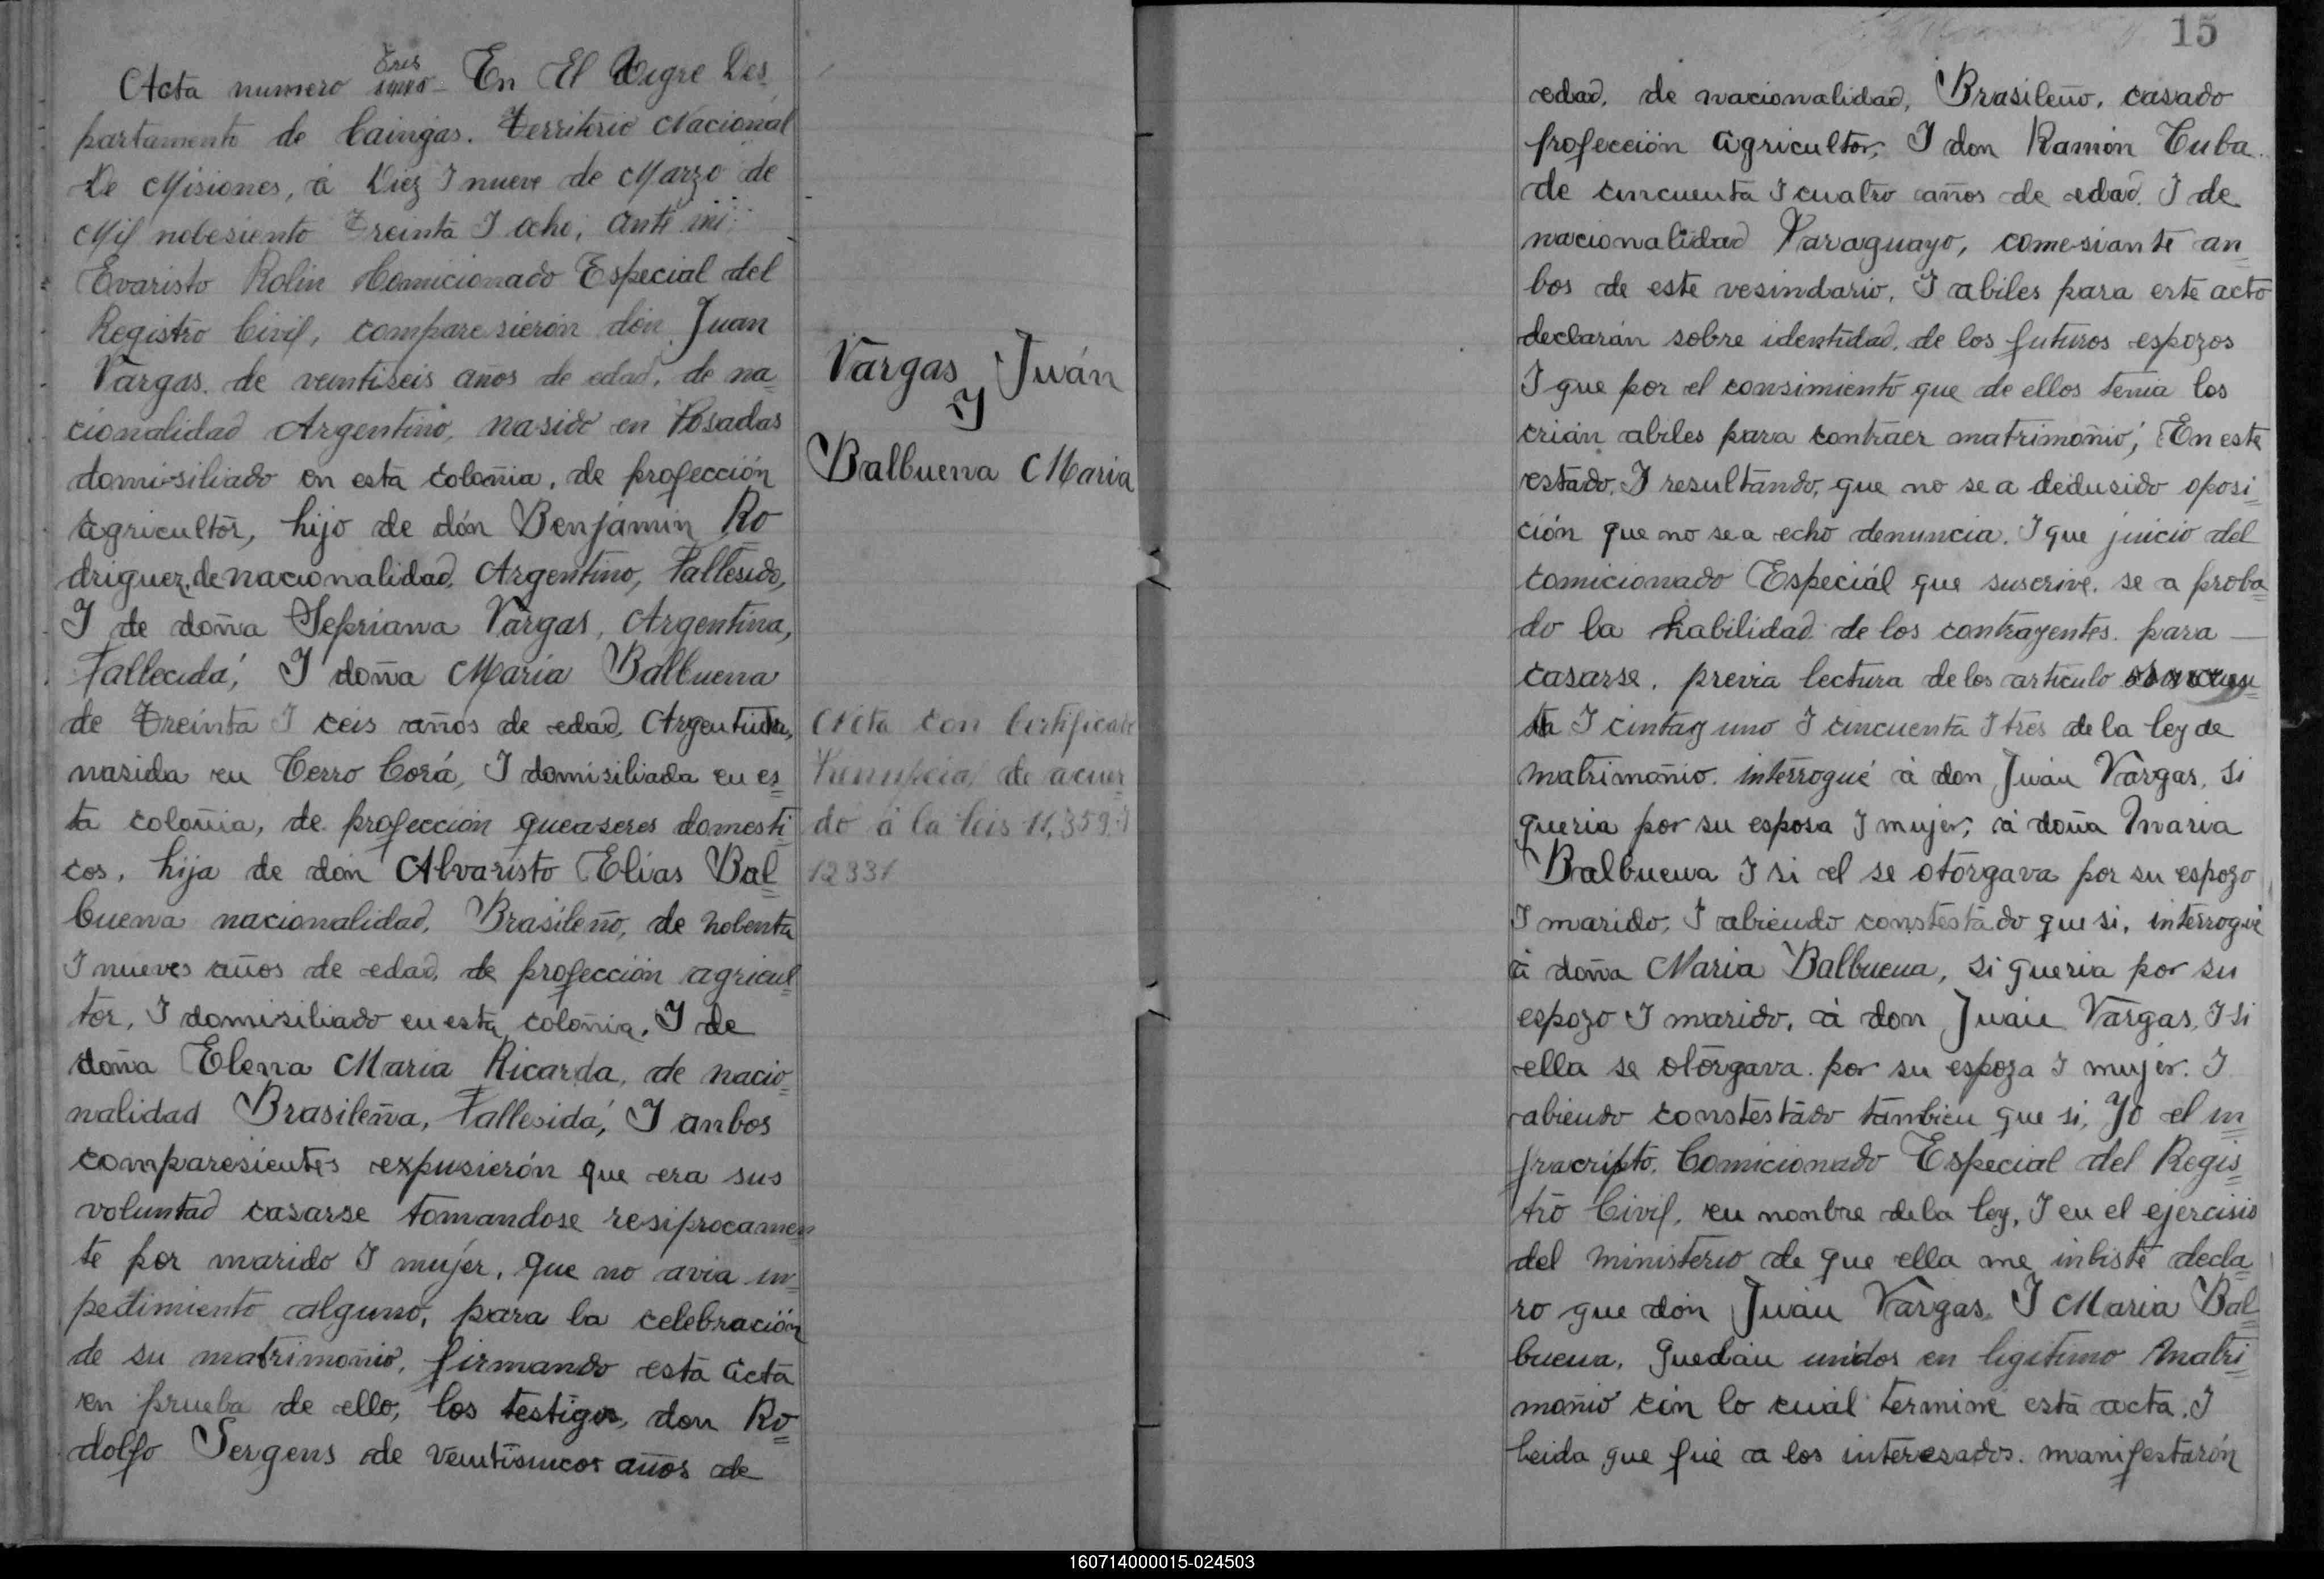 Acta numero Tres En El Tigre Des
partamento de Caingas. Territorio Nacional
De Misiones, á Diez I nueve de Marzo de
Mil nobesiento Treinta I acho, ante mi
Evaristo Rolin Comicionado Especial del
Registro Civil, comparesierón dón Juan
Vargas. de veintiseis años de edad. de na
cionalidad Argentino, nasido en Posadas
domisiliado en esta coloñia, de profección
agricultor, hijo de dón Benjamin Ro
driguez, de nacionalidad, Argentino, Fallesido,
I de doña Sepriana Vargas, Argentina,
Fallecida, I doña Maria Balbuena
de Treinta I ceis años de edad, Argentina,
nasida en Cerro Corá, I domisiliada en es
ta coloñia, de profección queaseres domesti
cos, hija de dón Alvaristo Elias Bal
buena nacionalidad, Brasileño, de nobenta
I nueves años de edad, de profección agricul
tor, I domisiliado en esta coloñia. I de
doña Elena Maria Ricarda, de nacio
nalidad Brasileña, Fallesida, I anbos
comparesientes expusierón que era sus
voluntad casarse tomandose resiprocamen
te por marido I mujer, que no avia in
pedimiento alguno, para la celebración
de su matrimoñio, firmando esta acta
en prueba de ello, los testigos, don Ro
dolfo Sergens de años de
Vargas Juán
Y
Balbuena Maria
Acta con Certificado
Prenupcial de acuer
do á la leis 11,359 I
12331
15
edad, de nacionalidad, Brasileño, casado
profección agricultor, I don Ramón Cuba.
de cincuenta I cuatro años de edad. I de
nacionalidad Paraguayo, comesiante an
bos de este vesindario, I abiles para este acto
declarán sobre identidad, de los futuros espozos
I que por el consimiento que de ellos tenia los
crián abiles para contraer matrimoñio, En este
estado, I resultando, que no se a dedusido oposi
ción que no se a echo denuncia. I que juicio del
comicionado Especiál que suscrive. se a proba
do la habilidad de los contrayentes. para
casarse. previa lectura de los articulo
ta I cintay uno I cincuenta I tres de la ley de
matrimoñio. interrogué á don Juán Vargas, si
queria por su esposa I mujer, á doña Maria
Balbuena I si el se otorgava por su espozo
I marido, I abiendo constestado que si, interrogué
á doña Maria Balbuena, si queria por su
espozo I marido, á don Juán Vargas, I si
ella se otorgava por su espoza I mujer. I
abiendo constestado tambien que si, Yo el in
fracripto, Comicionado Especial del Regis
tro Civil, en nonbre dela ley, I en el ejercisio
del ministerio de que ella me inbiste decla
ro que dón Juán Vargas, I Maria Bal
buena, Quedán unidos en legitimo Matri
moñio cón lo cual termine esta acta. I
leida que fué a los interesados. manifestarón
160714000015-024503